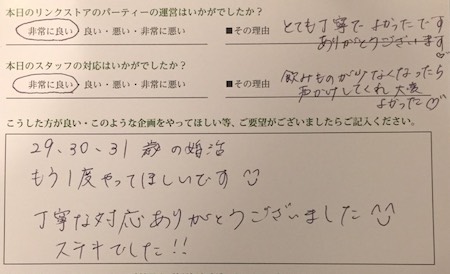 本日のリンクストアのパーティーの運営はいかがでしたか?
非常に良い・良い・悪い・非常に悪い ■その理由 とても丁寧でよかったです
ありがとうございます
本日のスタッフの対応はいかがでしたか?
非常に良い・良い・悪い・非常に悪い ■その理由 飲みものが少なくなったら
声かけしてくれ大変
よかった♡
こうした方が良い・このような企画をやってほしい等、ご要望がございましたらご記入ください。
29、30、31歳の婚活
もう1度やってほしいです
丁寧な対応ありがとうございました
ステキでした!!